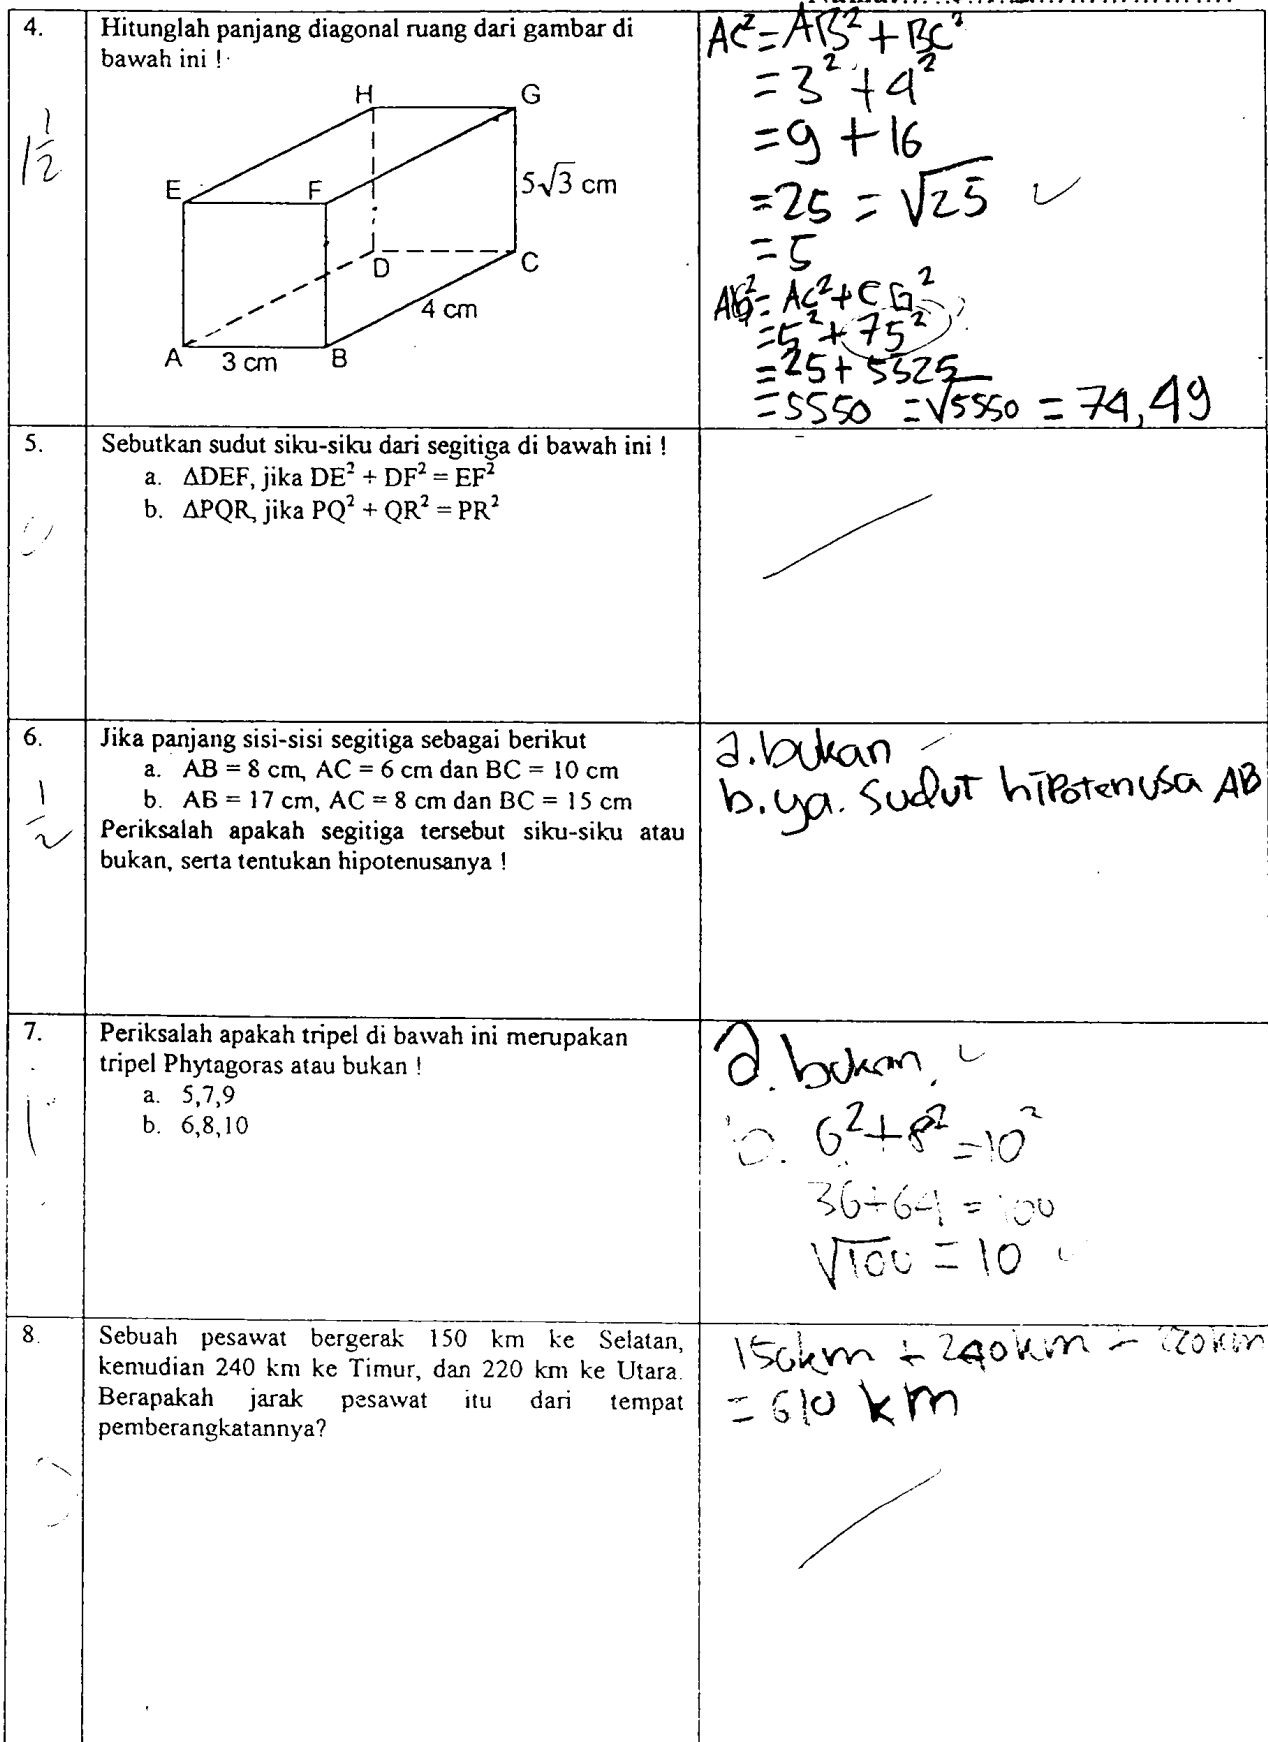 4.
Hitunglah panjang diagonal ruang dari gambar di
bawah ini !
1 1/2
H
G
E
F
5√3 cm
D
C
4 cm
A
3 cm
B
AC² = AB² + BC²
= 3² + 4²
= 9 + 16
= 25 = √25
= 5
AG² = AC² + CG²
= 5² + 75²
= 25 + 5525
= 5550 = √5550 = 74,49
5.
Sebutkan sudut siku-siku dari segitiga di bawah ini !
a. ΔDEF, jika DE² + DF² = EF²
b. ΔPQR, jika PQ² + QR² = PR²
0
6.
Jika panjang sisi-sisi segitiga sebagai berikut
a. AB = 8 cm, AC = 6 cm dan BC = 10 cm
b. AB = 17 cm, AC = 8 cm dan BC = 15 cm
Periksalah apakah segitiga tersebut siku-siku atau
bukan, serta tentukan hipotenusanya !
1/2
a. bukan
b. ya. sudut hipotenusa AB
7.
Periksalah apakah tripel di bawah ini merupakan
tripel Phytagoras atau bukan !
a. 5,7,9
b. 6,8,10
1
a. bukan.
b. 6² + 8² = 10²
36 + 64 = 100
√100 = 10
8.
Sebuah pesawat bergerak 150 km ke Selatan,
kemudian 240 km ke Timur, dan 220 km ke Utara.
Berapakah jarak pesawat itu dari tempat
pemberangkatannya?
0
150km + 240km + 220km
= 610 km